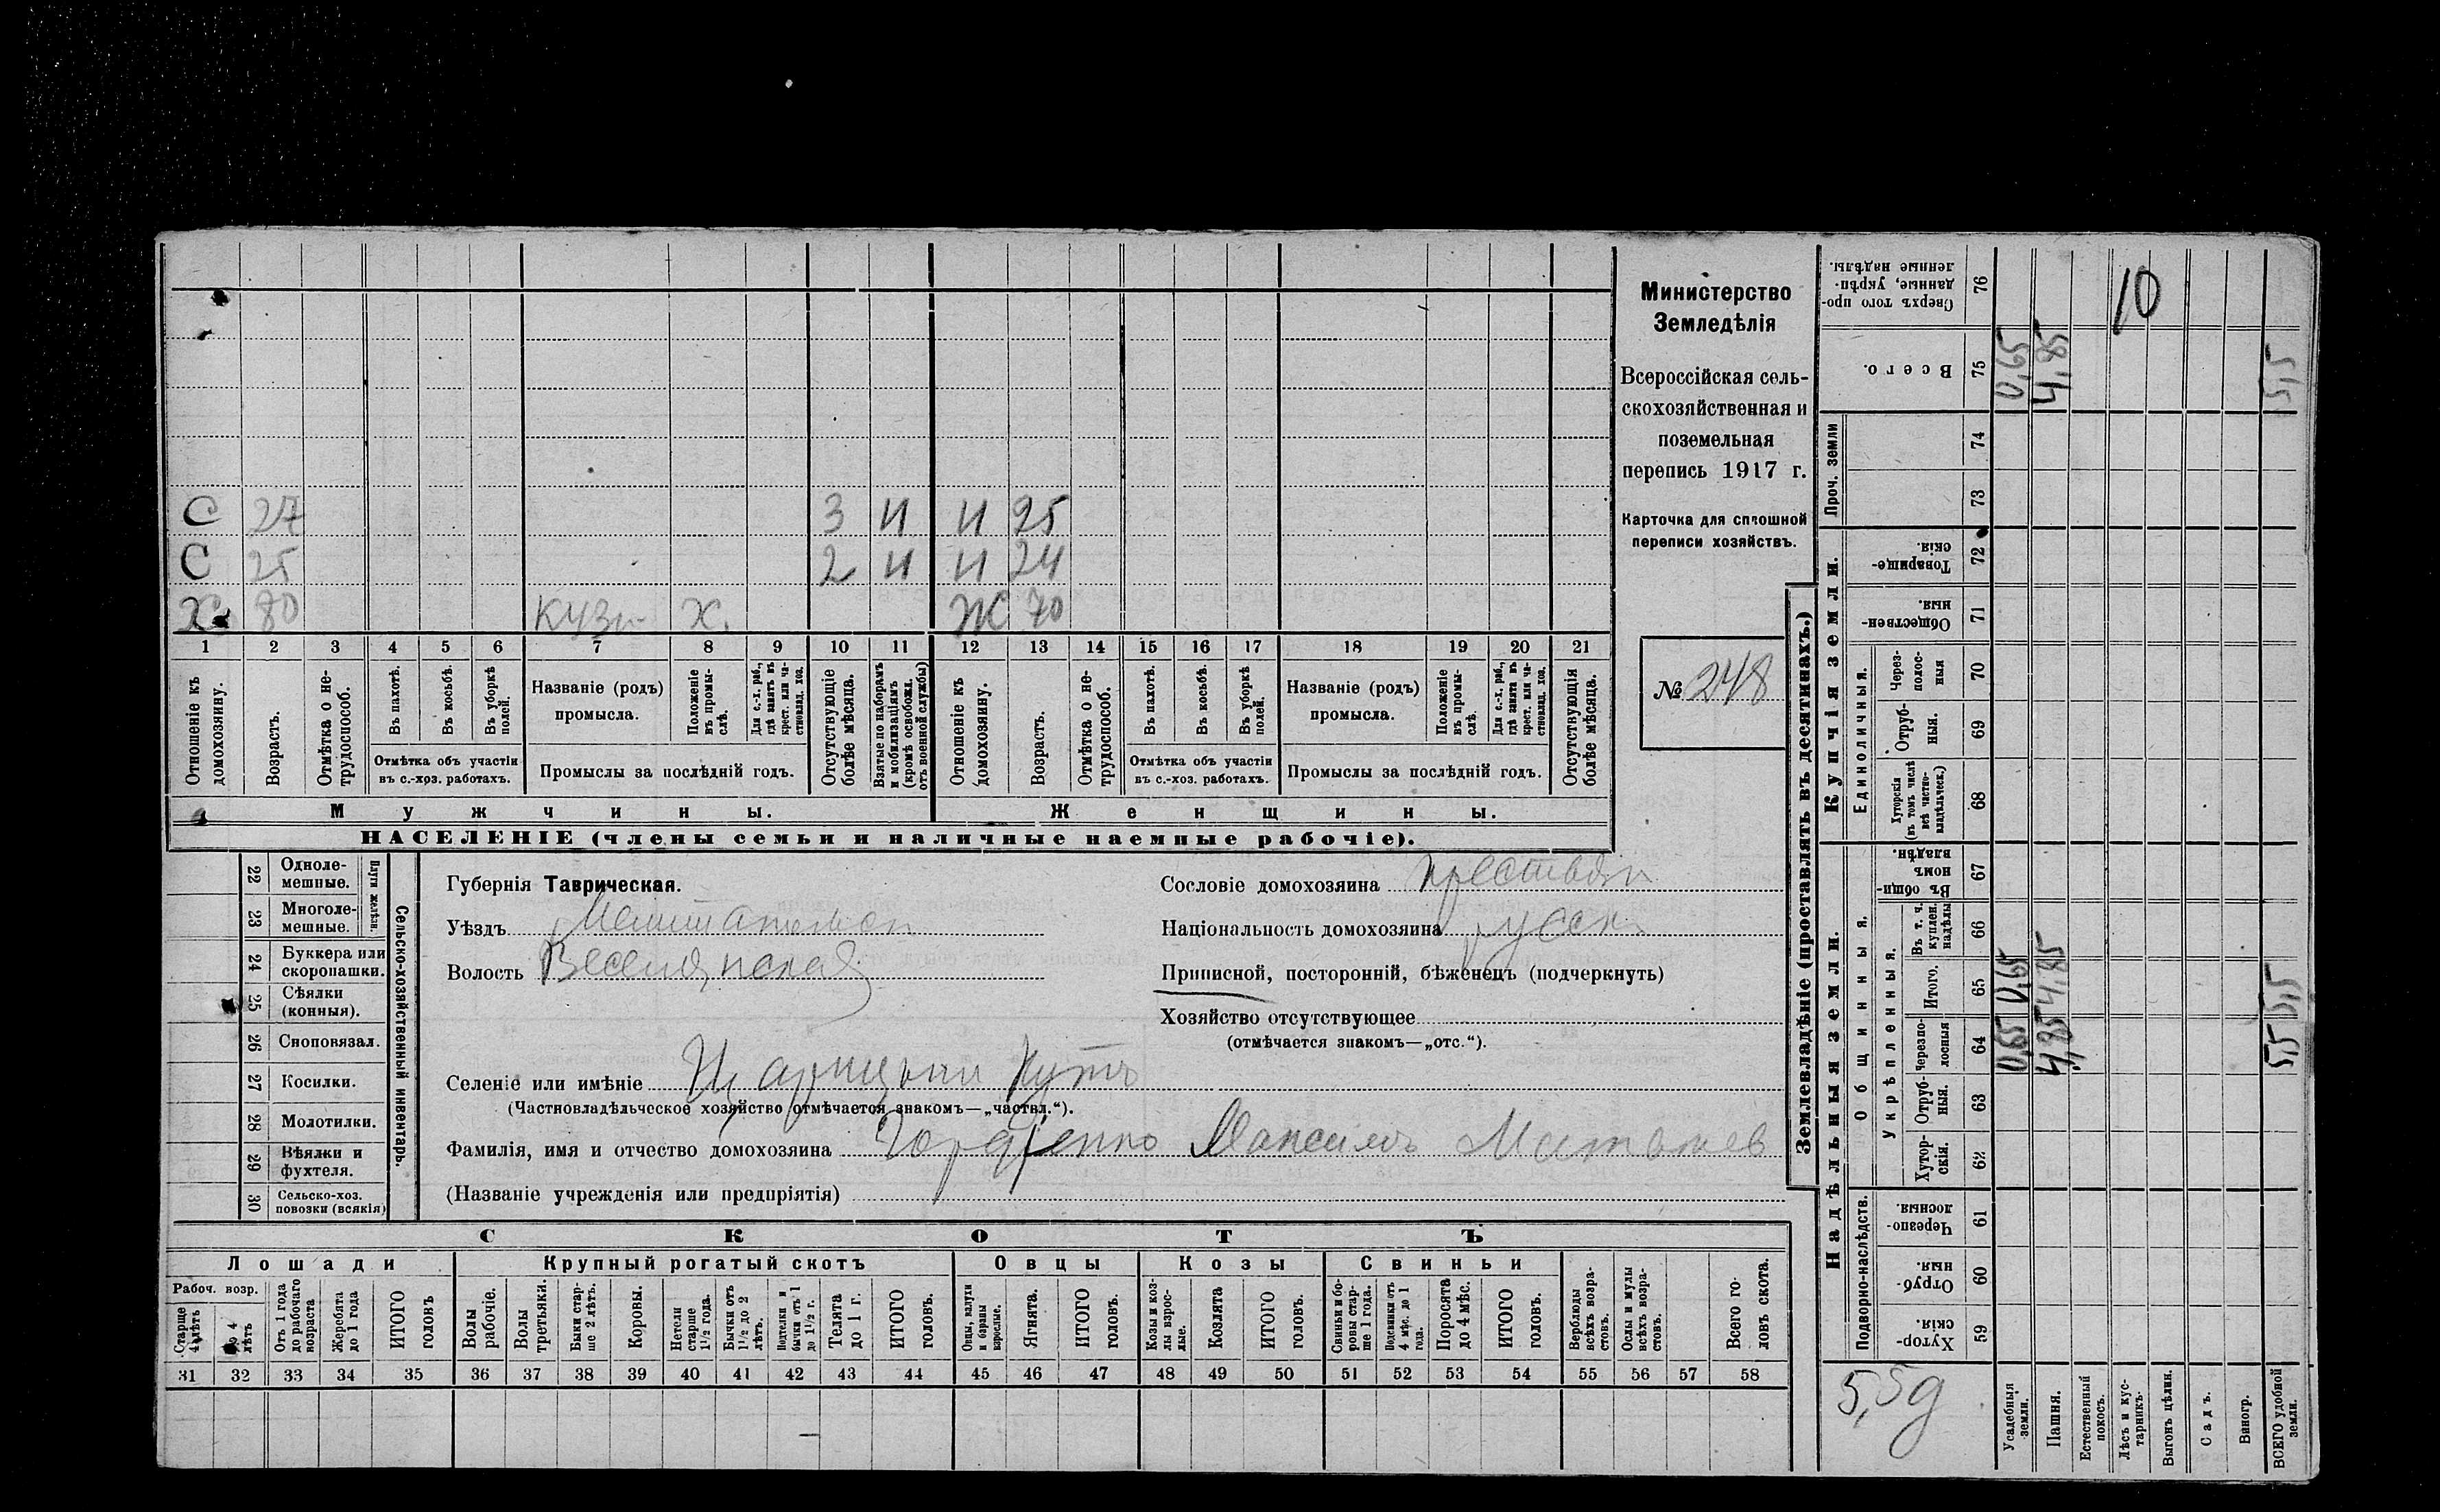 С 27 3 И И 25
С 25 2 И И 24
Х. 80 Кузн Х. Ж 70
1 2 3 4 5 6 7 8 9 10 11 12 13 14 15 16 17 18 19 20 21
Отношеніе къ домохозяину.
Возрастъ.
Отмѣтка о не-
трудоспособ.
Въ пахотѣ.
Въ косьбѣ.
Въ уборкѣ
полей.
Отмѣтка объ участіи
въ с.-хоз. работахъ.
Названіе (родъ)
промысла.
Положеніе
въ промы-
слѣ.
Для с.-х. раб.,
гдѣ занятъ въ
крест. или ча-
стновлад. хоз.
Промыслы за послѣдній годъ.
Отсутствующіе
болѣе мѣсяца.
Взятые по наборамъ
и мобилизаціямъ
(кромѣ освобожд.
отъ военной службы)
Отношеніе къ
домохозяину.
Возрастъ.
Отмѣтка о не-
трудоспособ.
Въ пахотѣ.
Въ косьбѣ.
Въ уборкѣ
полей.
Отмѣтка объ участіи
въ с.-хоз. работахъ.
Названіе (родъ)
промысла.
Положеніе
въ промы-
слѣ.
Для с.-х. раб.,
гдѣ занята въ
крест. или ча-
стновлад. хоз.
Промыслы за послѣдній годъ.
Отсутствующія
болѣе мѣсяца.
Мужчины.
Женщины.
НАСЕЛЕНІЕ (члены семьи и наличные наемные рабочіе).
Министерство
Земледѣлія
Всероссійская сель-
скохозяйственная и
поземельная
перепись 1917 г.
Карточка для сплошной
переписи хозяйствъ.
№ 248
22 Одноле-
мешные.
23 Многоле-
мешные.
Плуги желѣзн.
24 Буккера или
скоропашки.
25 Сѣялки
(конныя).
26 Сноповязал.
27 Косилки.
28 Молотилки.
29 Вѣялки и
фухтеля.
30 Сельско-хоз.
повозки (всякія)
Сельско-хозяйственный инвентарь.
Губернія Таврическая.
Уѣздъ
Волость Веселянская
Селеніе или имѣніе Царицынъ Кутъ
(Частновладѣльческое хозяйство отмѣчается знакомъ—„частвл.“).
Фамилія, имя и отчество домохозяина Гордіенко Максимъ
(Названіе учрежденія или предпріятія)
Сословіе домохозяина крестьян
Національность домохозяина русск
Приписной, посторонній, бѣженецъ (подчеркнуть)
Хозяйство отсутствующее
(отмѣчается знакомъ—„отс.“).
СКОТЪ
Лошади
Крупный рогатый скотъ
Овцы
Козы
Свиньи
Рабоч. возр.
Старше
4 лѣтъ
До 4
лѣтъ
Отъ 1 года
до рабочаго
возраста
Жеребята
до 1 года
ИТОГО
головъ
Волы
рабочіе.
Волы
третьяки.
Быки стар-
ше 2 лѣтъ.
Коровы.
Нетели
старше
1½ года.
Бычки отъ
1½ до 2
лѣтъ.
Подтелки и
бычки отъ 1
до 1½ г.
Телята
до 1 г.
ИТОГО
головъ.
Овцы, валухи
и бараны
взрослые.
Ягнята.
ИТОГО
головъ.
Козы и коз-
лы взрос-
лые.
Козлята
ИТОГО
головъ.
Свиньи и бо-
ровы стар-
ше 1 года.
Подсвинки отъ
4 мѣс. до 1
года.
Поросята
до 4 мѣс.
ИТОГО
головъ.
Верблюды
всѣхъ возра-
стовъ.
Ослы и мулы
всѣхъ возра-
стовъ.
Всего го-
ловъ скота.
31 32 33 34 35 36 37 38 39 40 41 42 43 44 45 46 47 48 49 50 51 52 53 54 55 56 57 58
Землевладѣніе (проставлять въ десятинахъ.)
Надѣльныя земли.
Купчія земли.
Проч. земли
Подворно-наслѣдств.
Общинныя.
Укрѣпленныя.
Единоличныя.
Сверхъ того про-
данные, укрѣп-
ленные надѣлы. 76 10
Всего. 75 0,65 4,85 5,5
74
73
Товарище-
скія. 72
Обществен-
ныя. 71
Через-
полос-
ныя 70
Отруб-
ныя. 69
Хуторскія
(въ томъ числѣ
всѣ частно-
владѣльческ.) 68
Въ общин-
номъ
владѣн. 67
Въ т. ч.
куплен.
надѣлы 66
Итого. 65 0,65 4,85 5,5
Черезпо-
лосныя 64 0,65 4,85 5,5
Отруб-
ныя. 63
Хутор-
скія. 62
Черезпо-
лосныя. 61
Отруб-
ныя. 60
Хутор-
скія. 59
5,5д
Усадебныя
земли.
Пашня.
Естественный
покосъ.
Лѣсъ и кус-
тарникъ.
Выгонъ цѣлин.
Садъ.
Виногр.
ВСЕГО удобной
земли.